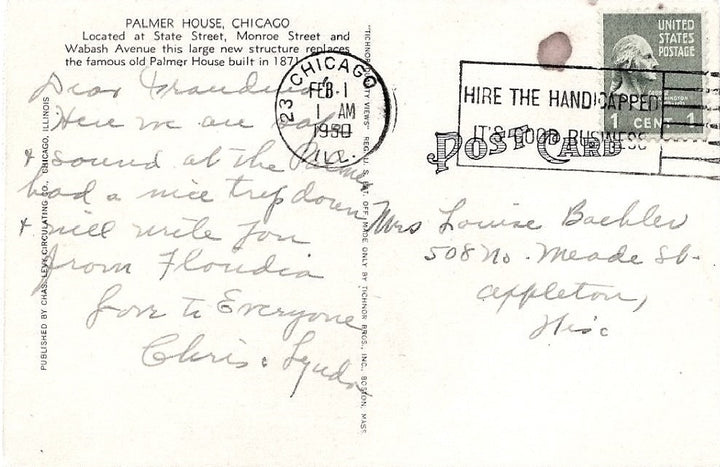 PALMER HOUSE, CHICAGO
Located at State Street, Monroe Street and
Wabash Avenue this large new structure replaces
the famous old Palmer House built in 1871
Dear Grandma
Here we are safe
& sound at the Palmer
had a nice trip down
& will write you
from Florida
Love to Everyone
Chris & Lynda
PUBLISHED BY CHAS. LEVY CIRCULATING CO., CHICAGO, ILLINOIS
"TICHNOR QUALITY VIEWS" REG. U. S. PAT. OFF. MADE ONLY BY TICHNOR BROS., INC., BOSTON, MASS.
CHICAGO
23
FEB 1
1 AM
1950
ILL.
HIRE THE HANDICAPPED
IT'S GOOD BUSINESS
UNITED
STATES
POSTAGE
WASHINGTON
1 CENT 1
POST CARD
Mrs Louise Baehler
508 No. Meade St.
Appleton,
Wisc